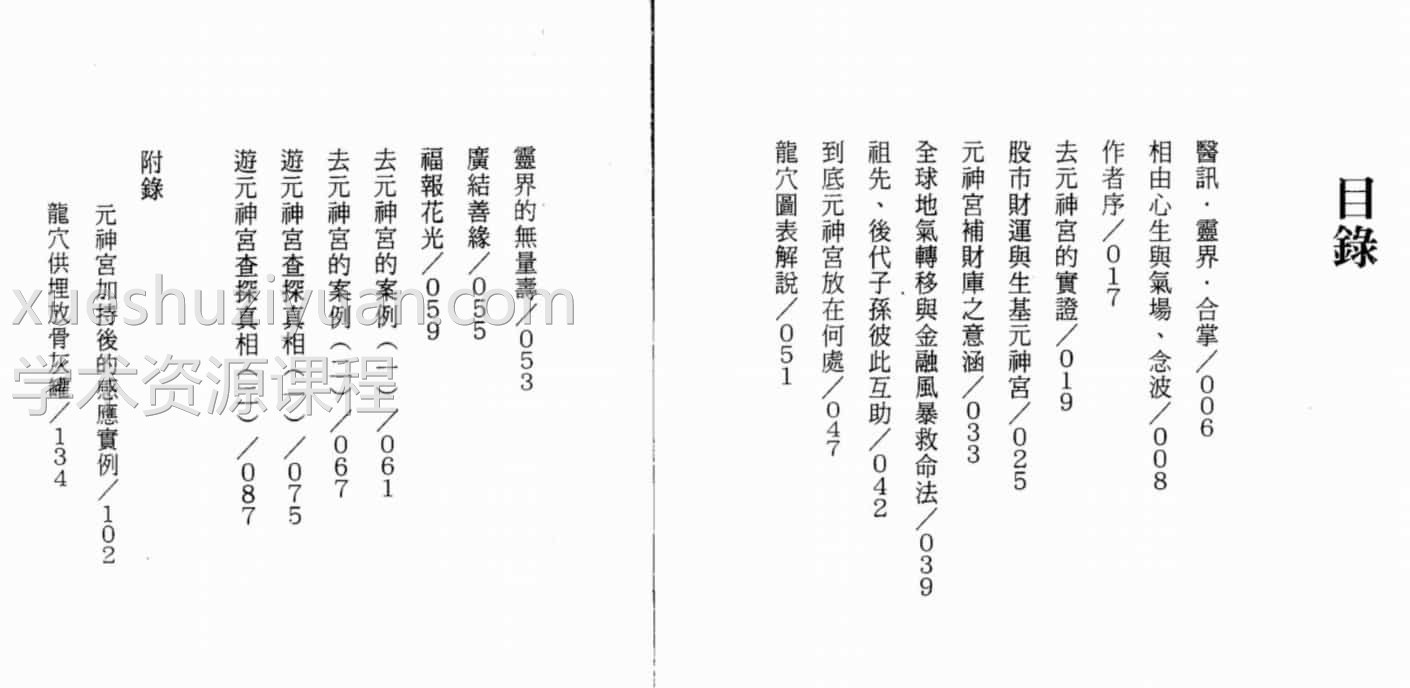 目錄
醫訊·靈界·合掌/006
相由心生與氣場、念波/008
作者序/017
去元神宮的實證/019
股市財運與生基元神宮/025
元神宮補財庫之意涵/033
全球地氣轉移與金融風暴救命法/039
祖先、後代子孫彼此互助/042
到底元神宮放在何處/047
龍穴圖表解說/051
靈界的無量壽/053
廣結善緣/055
福報花光/059
去元神宮的案例(一)/061
去元神宮的案例(二)/067
遊元神宮查探真相(一)/075
遊元神宮查探真相(二)/087
附錄
元神宮加持後的感應實例/102
龍穴供埋放骨灰罐/134
xueshuziyuan.com
学术资源课程